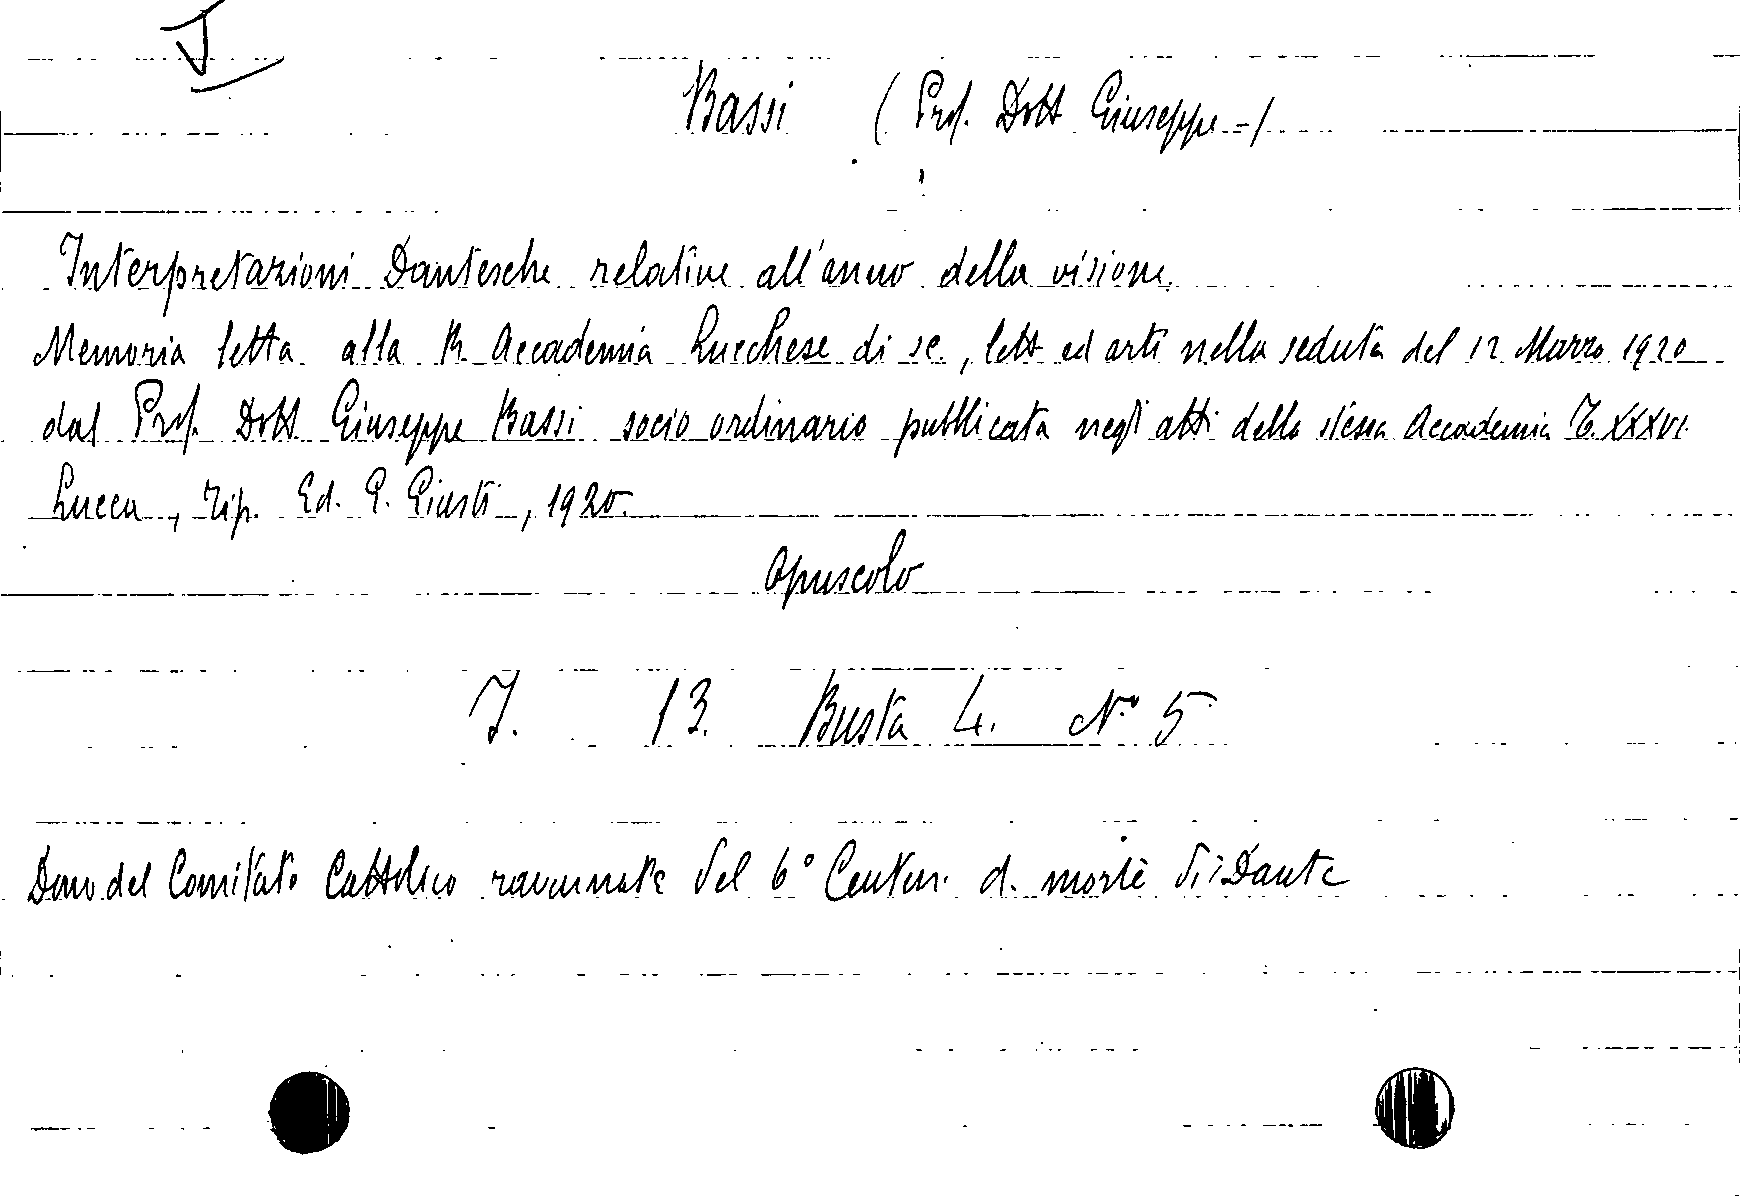 I
Bassi (Prof. Dott Giuseppe -)
Interpretazioni Dantesche relative all'anno della visione.
Memoria letta alla R. Accademia Lucchese di sc., lett ed arti nella seduta del 12 Marzo 1920
dal Prof. Dott Giuseppe Bassi socio ordinario pubblicata negli atti della stessa Accademia T. XXXVI.
Lucca, Tip. Ed. G. Giusti, 1920.
Opuscolo
I. 13. Busta 4. N° 5
Dono del Comitato Cattolico ravennate del 6° Centen. d. morte di Dante